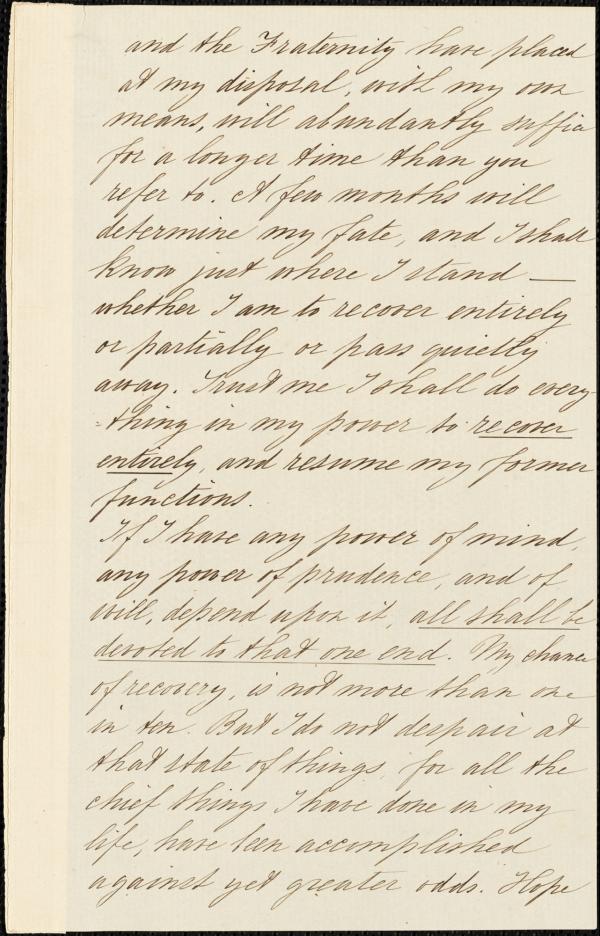 and the Fraternity have placed
at my disposal, with my own
means, will abundantly suffice
for a longer time than you
refer to. A few months will
determine my fate, and I shall
know just where I stand —
whether I am to recover entirely
or partially or pass quietly
away. Trust me I shall do every-
-thing in my power to recover
entirely, and resume my former
functions.
If I have any power of mind,
any power of prudence, and of
will, depend upon it, all shall be
devoted to that one end. My chance
of recovery, is not more than one
in ten. But I do not despair at
that state of things, for all the
chief things I have done in my
life, have been accomplished
against yet greater odds. Hope